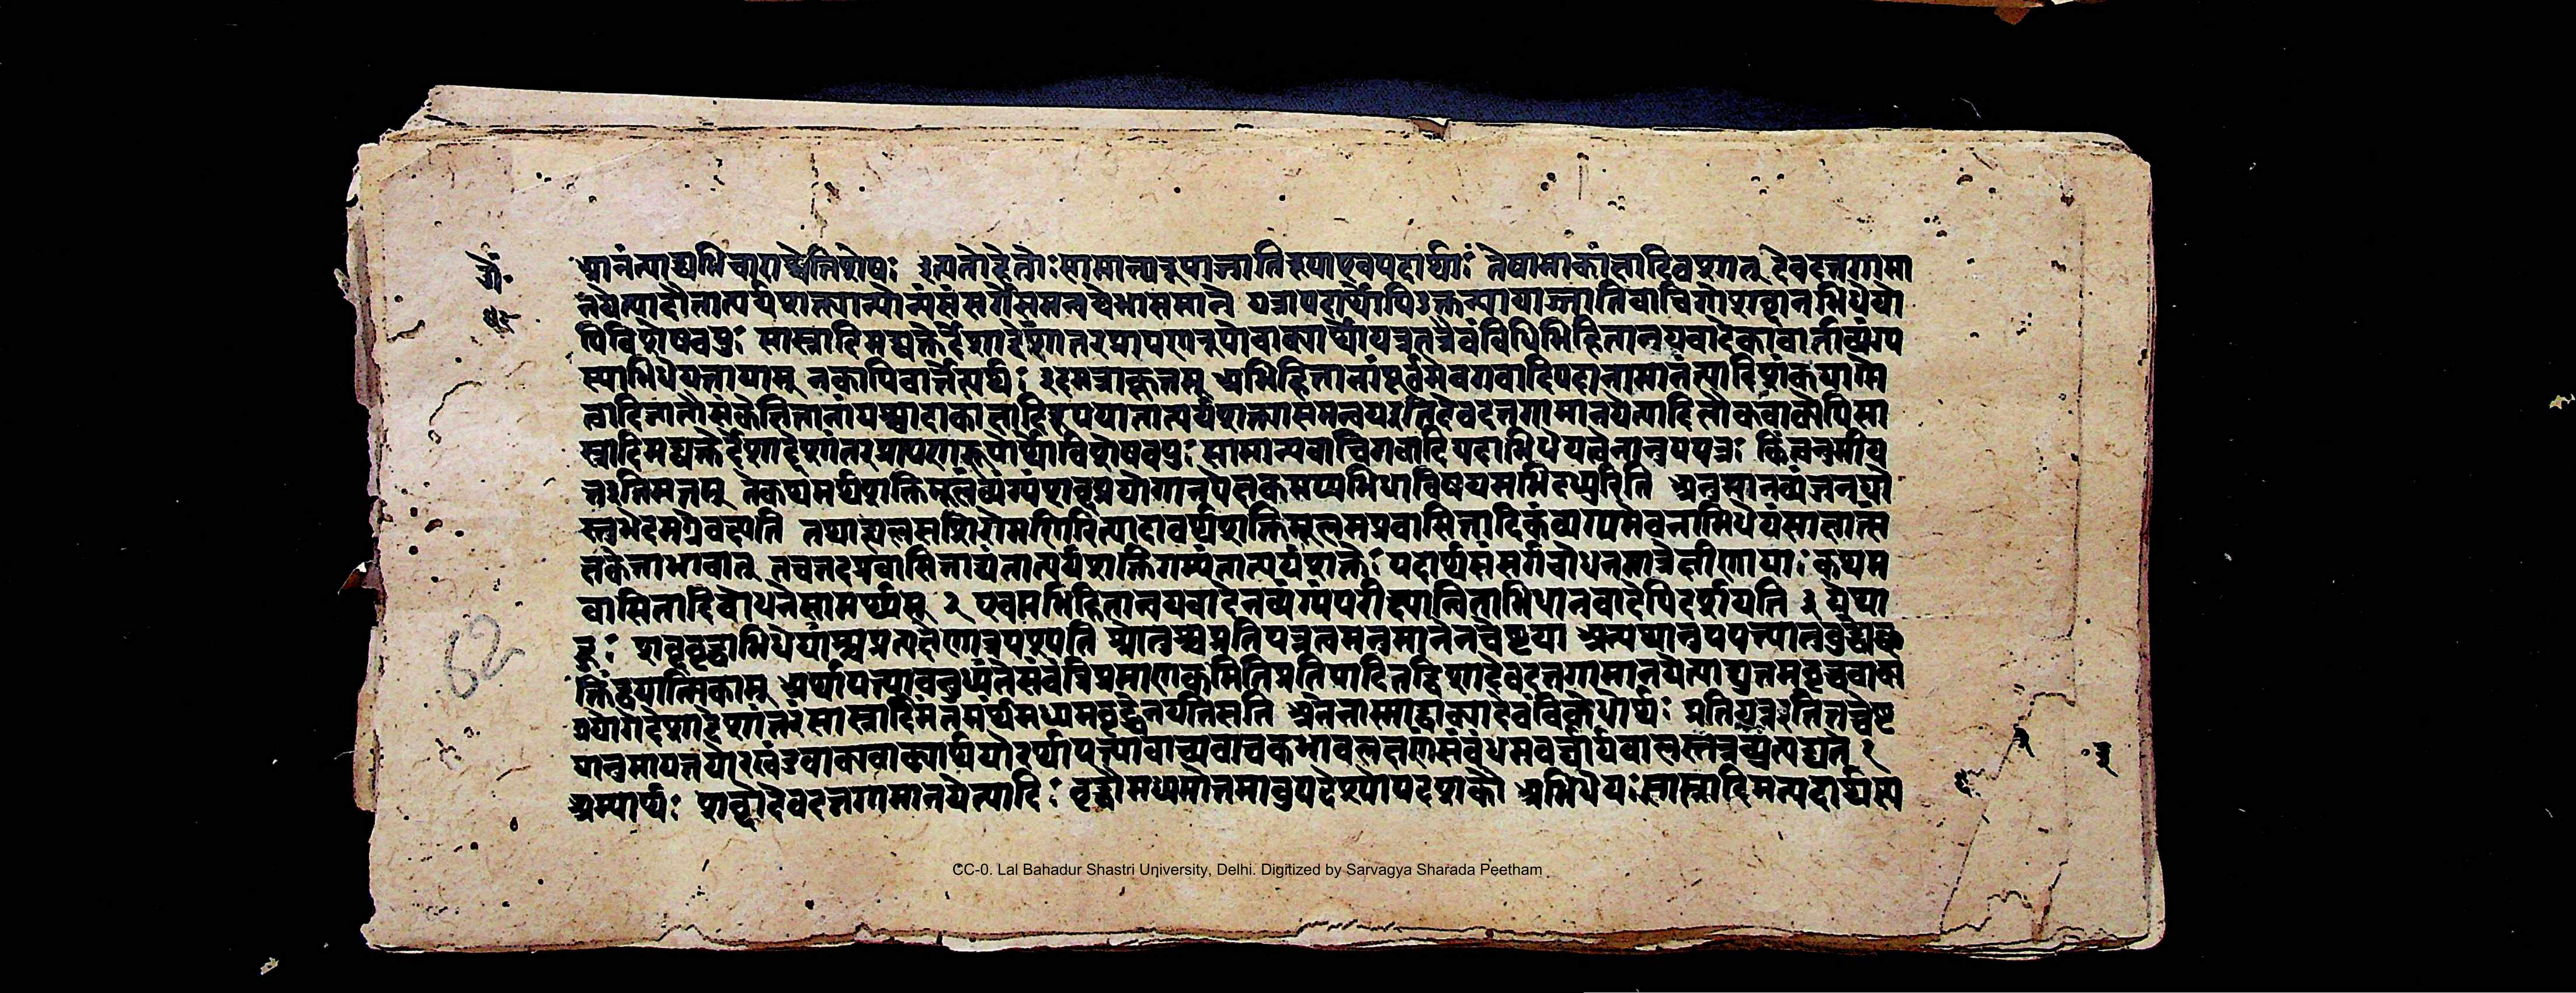 मानंत्याद्यभिचाराच्चेतिशेषः इत्यतोहेतोः सामान्यरूपाजातिरूपाएवपदार्थाः तेषामाकांक्षादिवशात् देवदत्तगामा
नयेत्यादौतात्पर्यशक्त्यान्योन्यंसंसर्गेसमन्वयेभासमाने यत्रापदार्थोपिउक्तन्यायाज्जातिवाचिगोशब्दानभिधेयो
पिविशेषवपुः सास्नादिमद्व्यक्तेर्देशाद्देशांतरप्रापणरूपोवाक्यार्थोयत्रतत्रैवंविधेभिहितान्वयवादेकावार्ताव्यंग्य
स्याभिधेयतायाम् नकापिवार्त्तेत्यर्थः इदमत्राकूतम् अभिहितानांपूर्वमेवगवादिपदानामानंत्यादिशंकयागो
त्वादिजातौसंकेतितानांपश्चादाकांक्षादिरूपयातात्पर्यशक्त्यासमन्वयइति देवदत्तगामानयेत्यादिलौकवाक्येपिसा
स्नादिमद्व्यक्तेर्देशाद्देशांतरप्रापणरूपोर्थोविशेषवपुः सामान्यवाचिगवादिपदाभिधेयत्वेनानुपपन्नः किंत्वनुमीय
तइतिमतम् तेकथमर्थशक्तिमूलंव्यंग्यंशब्दप्रयोगानपेक्षकमप्यभिधाविषयमभिदध्युरिति अनुमानव्यंजनयो
स्तुभेदमग्रेवक्ष्यति तथाह्यलसशिरोमणिरित्यादावर्थशक्तिमूलमप्रवासितादिकंव्यंग्यमेवनाभिधेयंसाक्षात्सं
केताभावात् नचतदप्रवासिताद्यंतात्पर्यशक्तिगम्यंतात्पर्यशक्तेः पदार्थसंसर्गबोधनमात्रेक्षीणायाः कथम
वासितादिबोधनेसामर्थ्यम् २ एवमभिहितान्वयवादेनव्यंग्यंपरीक्ष्यान्विताभिधानवादेपिदर्शयति ३ येप्या
हुः शब्दवृद्धाभिधेयांश्चप्रत्यक्षेणात्रपश्यति श्रोतुश्चप्रतिपन्नत्वमनुमानेनचेष्टया अन्यथानुपपत्त्यातुबुद्धेच्छ
क्तिंद्वयात्मिकाम् अर्थापत्त्यावबुध्यंतेसंबंधंत्रिप्रमाणकमितिप्रतिपादितदिशादेवदत्तगामानयेत्याद्युत्तमवृद्धवाक्य
प्रयोगाद्देशाद्देशांतरंसास्नादिमंतमर्थंमध्यमवृद्धेनयतिसति अनेनास्माद्वाक्यादेवंविधोर्थः प्रतिपन्नइतितच्चेष्ट
यानुमायतयोरखंडवाक्यवाक्यार्थयोरर्थापत्त्यावाच्यवाचकभावलक्षणंसंबंधमवधार्यबालस्तत्रव्युत्पद्यते १
अस्यार्थः शब्दोदेवदत्तगामानयेत्यादिः वृद्धौमध्यमोत्तमावुपदेश्योपदेशकौ अभिधेयः सास्नादिमत्पदार्थस्य
62
CC-0. Lal Bahadur Shastri University, Delhi. Digitized by Sarvagya Sharada Peetham